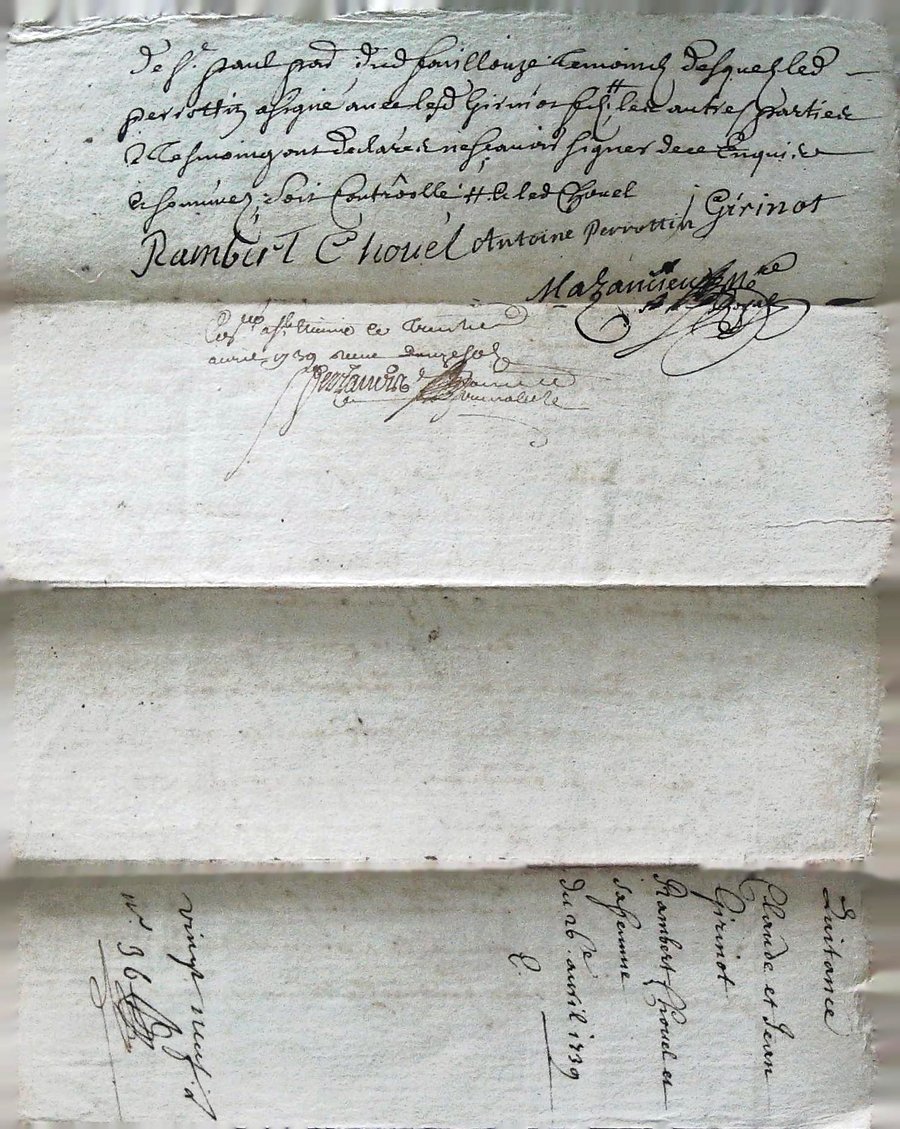 de St paul pad. dud fouillouze temoins desquels led
perrottin a signé avec lesd Girinot # les autres parties
& tesmoing ont declarés ne scavoir signer de ce Enquis
& sommés, soit Controollé # & led Chouel
Rambert Chouel Antoine Perrottin Girinot
Mazancieu Nore
Royal
St Etienne le trentie
avril 1739 receu douze sols
Quitance
Claude et Jean
Girinot
Rambert Chouel et
sa femme
du 26e avril 1739
C
vingt neuf
no 36